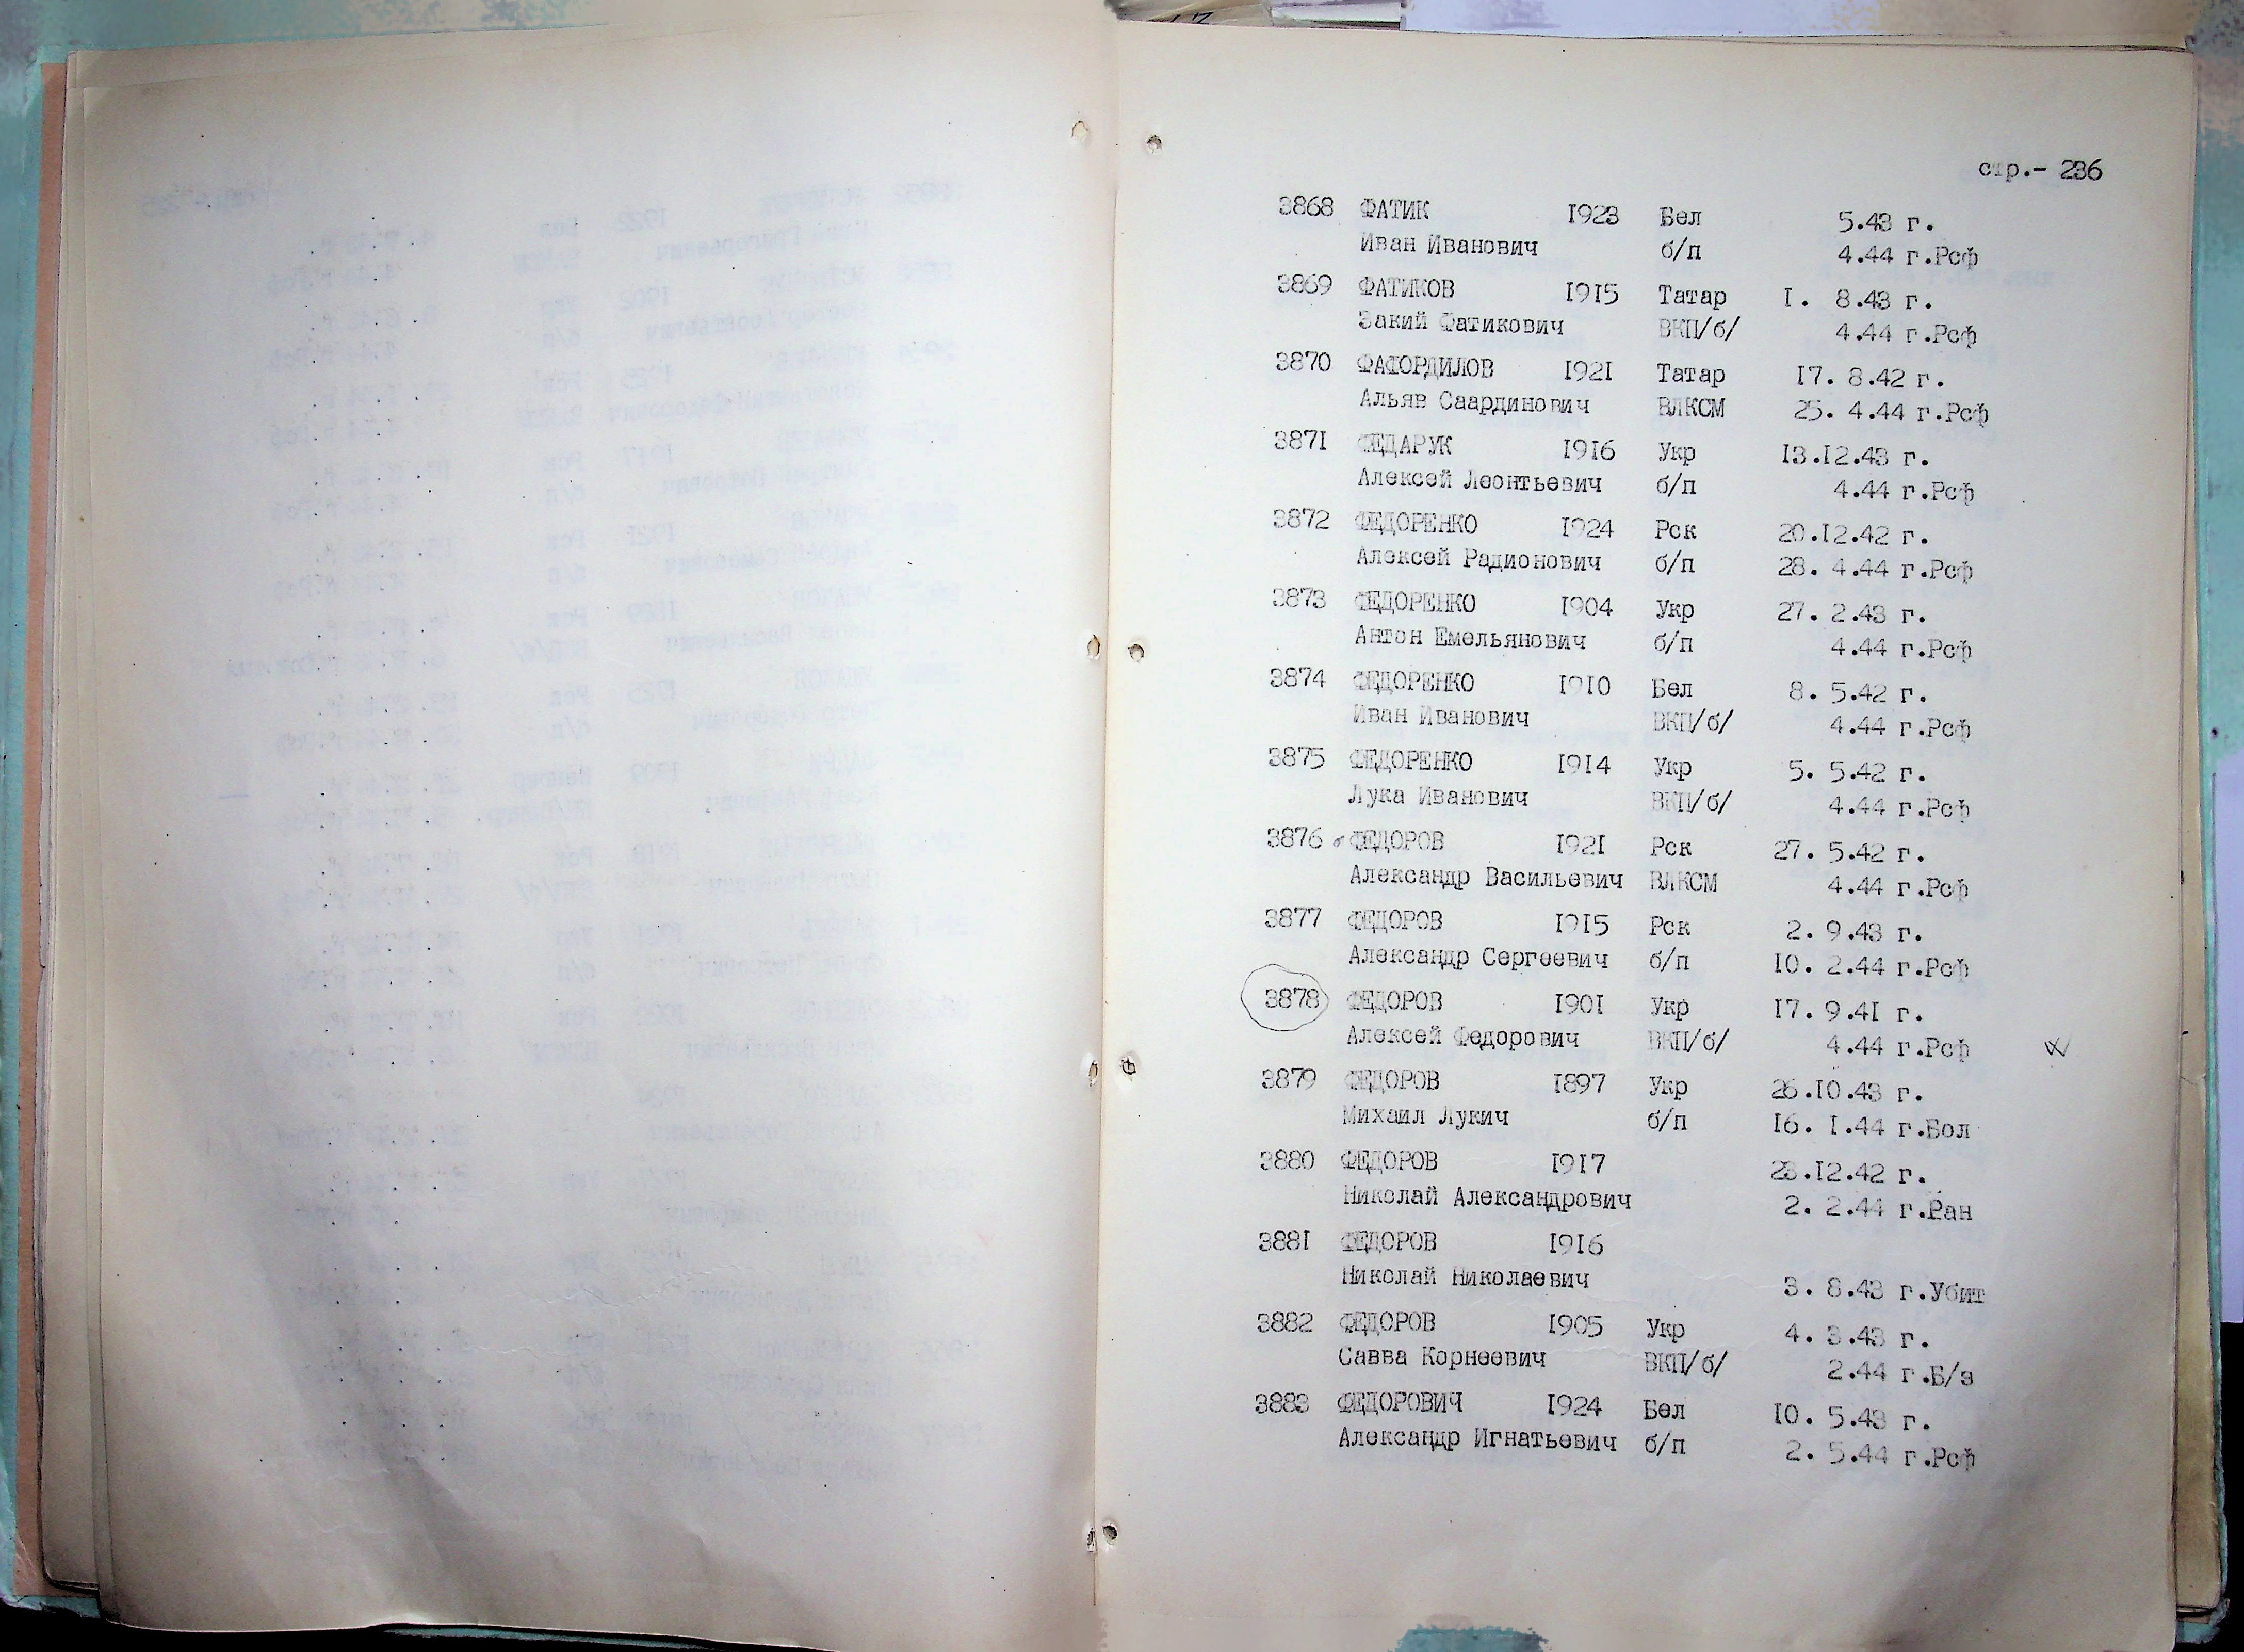 стр.- 236
3868 ФАТИК 1923 Бел 5.43 г.
Иван Иванович б/п 4.44 г.Рсф
3869 ФАТИКОВ 1915 Татар 1. 8.43 г.
Закий Фатикович ВКП/б/ 4.44 г.Рсф
3870 ФАТОРДИЛОВ 1921 Татар 17. 8.42 г.
Альяв Саардинович ВЛКСМ 25. 4.44 г.Рсф
3871 ФЕДАРУК 1916 Укр 13.12.43 г.
Алексей Леонтьевич б/п 4.44 г.Рсф
3872 ФЕДОРЕНКО 1924 Рск 20.12.42 г.
Алексей Радионович б/п 28. 4.44 г.Рсф
3873 ФЕДОРЕНКО 1904 Укр 27. 2.43 г.
Антон Емельянович б/п 4.44 г.Рсф
3874 ФЕДОРЕНКО 1910 Бел 8. 5.42 г.
Иван Иванович ВКП/б/ 4.44 г.Рсф
3875 ФЕДОРЕНКО 1914 Укр 5. 5.42 г.
Лука Иванович ВКП/б/ 4.44 г.Рсф
3876 ФЕДОРОВ 1921 Рск 27. 5.42 г.
Александр Васильевич ВЛКСМ 4.44 г.Рсф
3877 ФЕДОРОВ 1915 Рск 2. 9.43 г.
Александр Сергеевич б/п 10. 2.44 г.Рсф
3878 ФЕДОРОВ 1901 Укр 17. 9.41 г.
Алексей Федорович ВКП/б/ 4.44 г.Рсф
3879 ФЕДОРОВ 1897 Укр 26.10.43 г.
Михаил Лукич б/п 16. 1.44 г.Бол
3880 ФЕДОРОВ 1917 28.12.42 г.
Николай Александрович 2. 2.44 г.Ран
3881 ФЕДОРОВ 1916
Николай Николаевич 3. 8.43 г.Убит
3882 ФЕДОРОВ 1905 Укр 4. 3.43 г.
Савва Корнеевич ВКП/б/ 2.44 г.Б/з
3883 ФЕДОРОВИЧ 1924 Бел 10. 5.43 г.
Александр Игнатьевич б/п 2. 5.44 г.Рсф